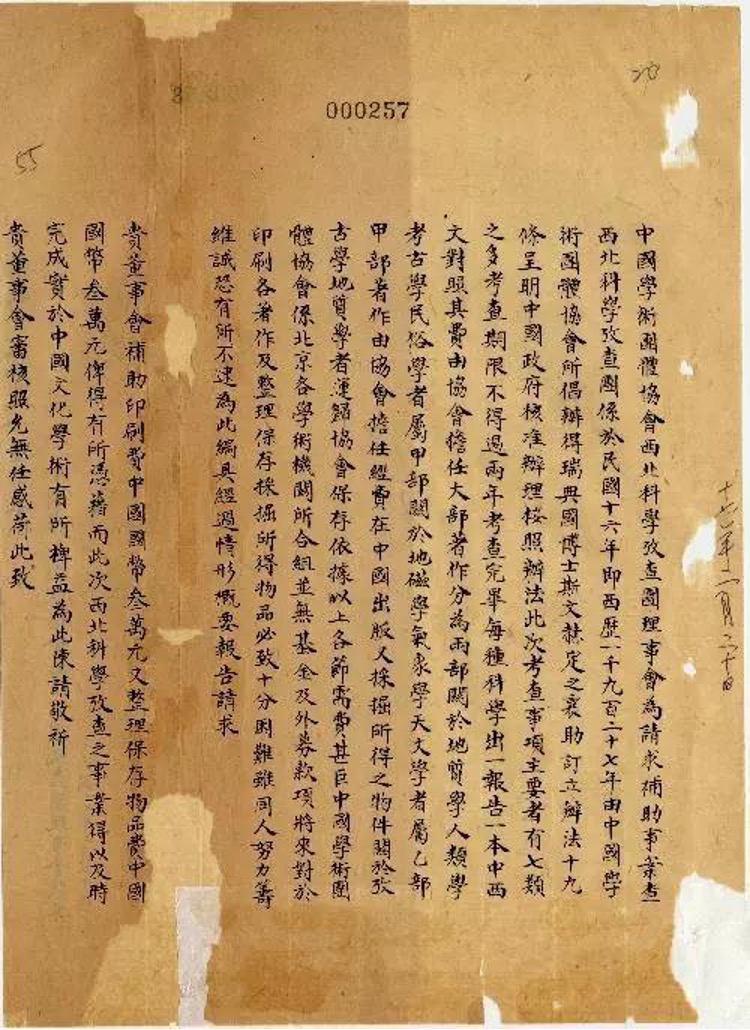 000257
55
中國學術團體協會西北科學攷查團理事會為請求補助事案查
西北科學攷查團係於民國十六年即西歷一千九百二十七年由中國學
術團體協會所倡辦得瑞典國博士斯文赫定之襄助訂立辦法十九
條呈明中國政府核准辦理按照辦法此次考查事項主要者有七類
之多考查期限不得過兩年考查完畢每種科學出一報告一本中西
文對照其費由協會擔任大部著作分為兩部關於地質學人類學
考古學民俗學者屬甲部關於地磁學氣象學天文學者屬乙部
甲部著作由協會擔任經費在中國出版又採掘所得之物件關於攷
古學地質學者運歸協會保存依據以上各節需費甚巨中國學術團
體協會係北京各學術機關所合組並無基金及外募款項將來對於
印刷各著作及整理保存採掘所得物品必致十分困難雖同人努力籌
維誠恐有所不逮為此編具經過情形概要報告請求
貴董事會補助印刷費中國國幣叁萬元又整理保存物品費中國
國幣叁萬元俾得有所憑藉而此次西北科學攷查之事業得以及時
完成實於中國文化學術有所裨益為此陳請敬祈
貴董事會審核照允無任感荷此致